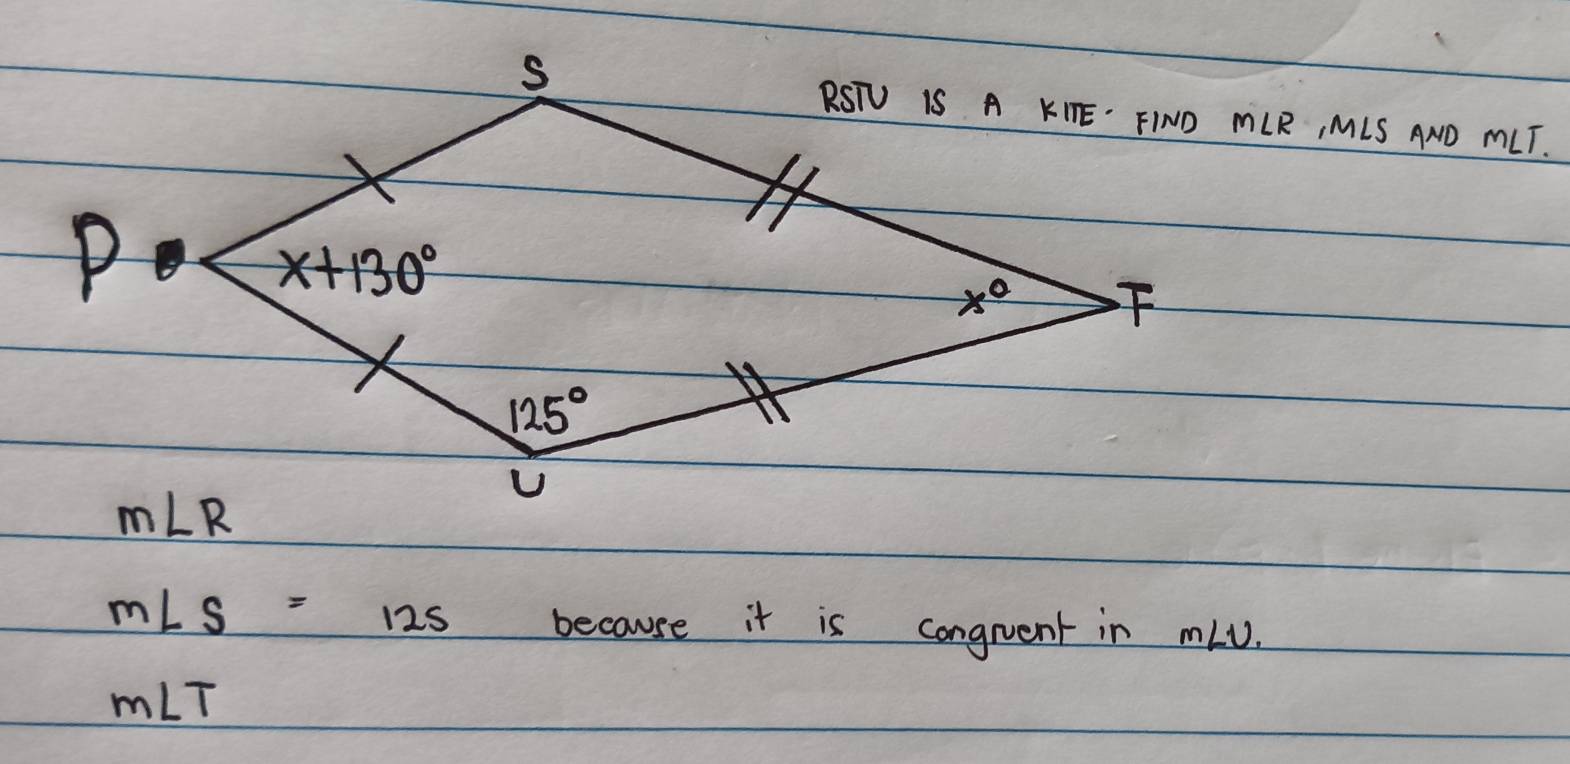 S
RSTU IS A KITE. FIND MLR, MLS AND MLT.
P
x+130°
x°
T
125°
U
mLR
mLS = 125 because it is congruent in mLU.
mLT